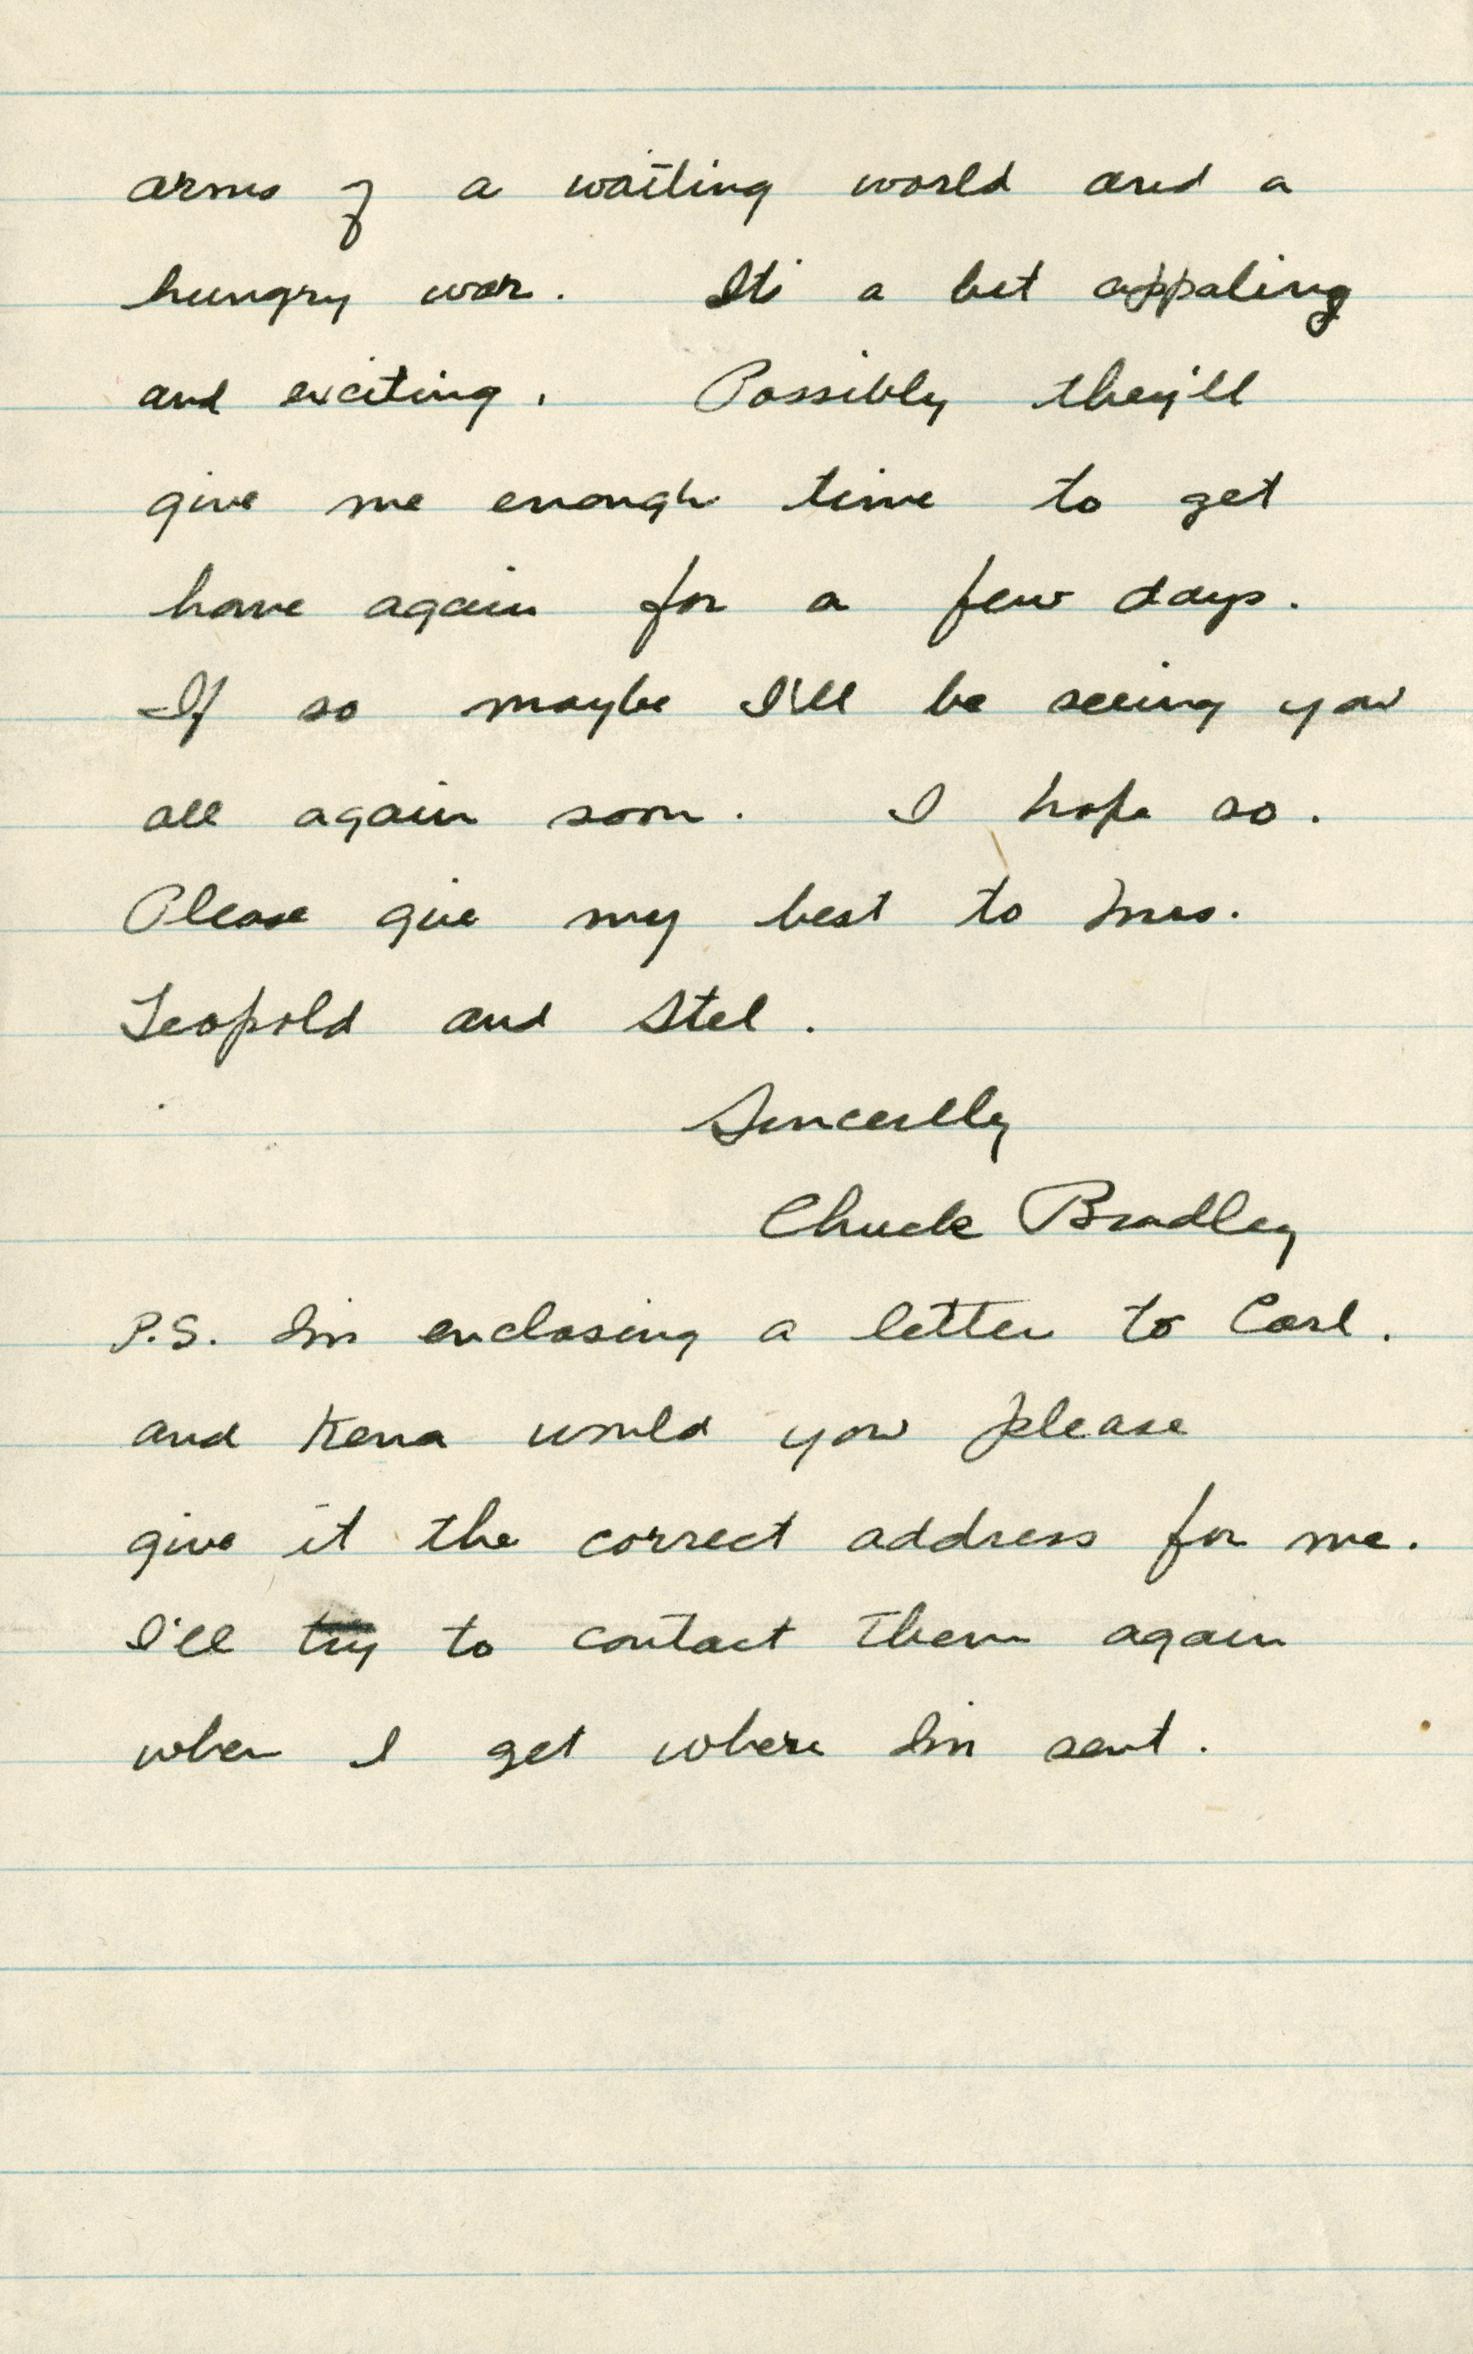 arms of a waiting world and a
hungry war. It's a bit appaling
and exciting. Possibly they'll
give me enough time to get
home again for a few days.
If so maybe I'll be seeing you
all again soon. I hope so.
Please give my best to Mrs.
Leopold and Stel.
Sincerlly
Chuck Bradley
P.S. I'm enclosing a letter to Carl.
and Kena would you please
give it the correct address for me.
I'll try to contact them again
when I get where I'm sent.